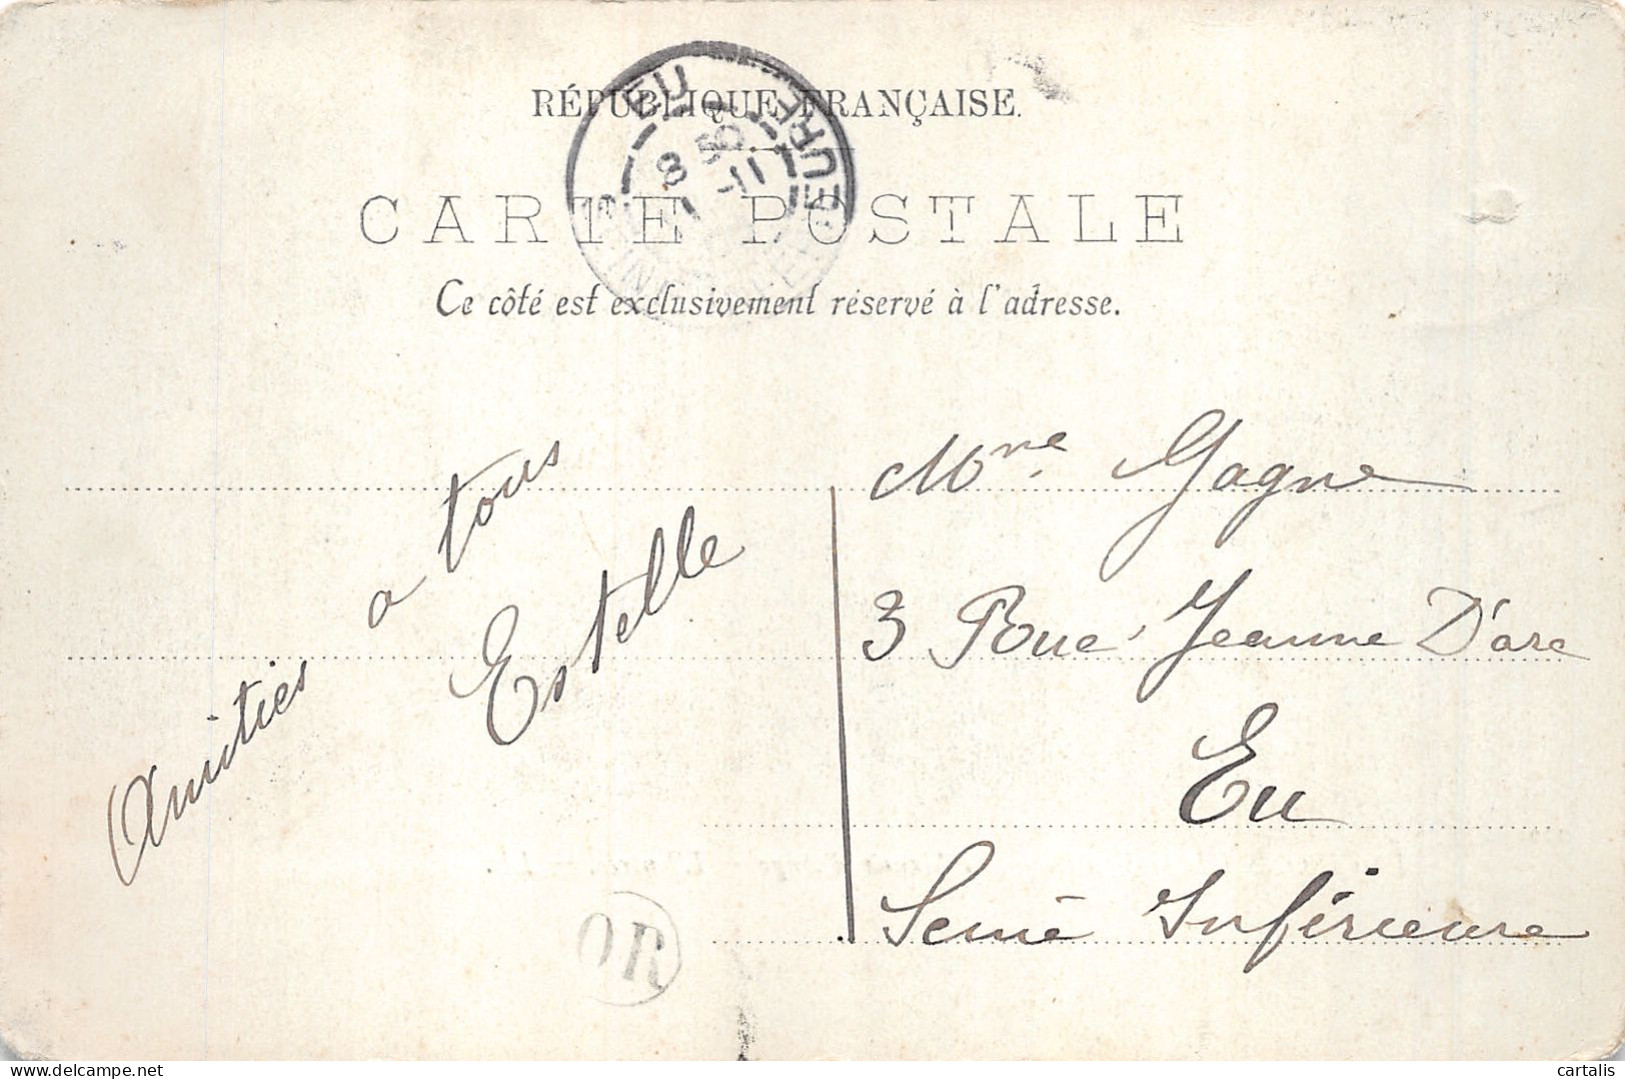 RÉPUBLIQUE FRANÇAISE.
CARTE POSTALE
Ce côté est exclusivement réservé à l'adresse.
EU
8 30
11
Amities a tous
Estelle
Mme Gagne
3 Rue Jeanne D'arc
Eu
Seine Inférieure
OR
delcampe.net
cartalis